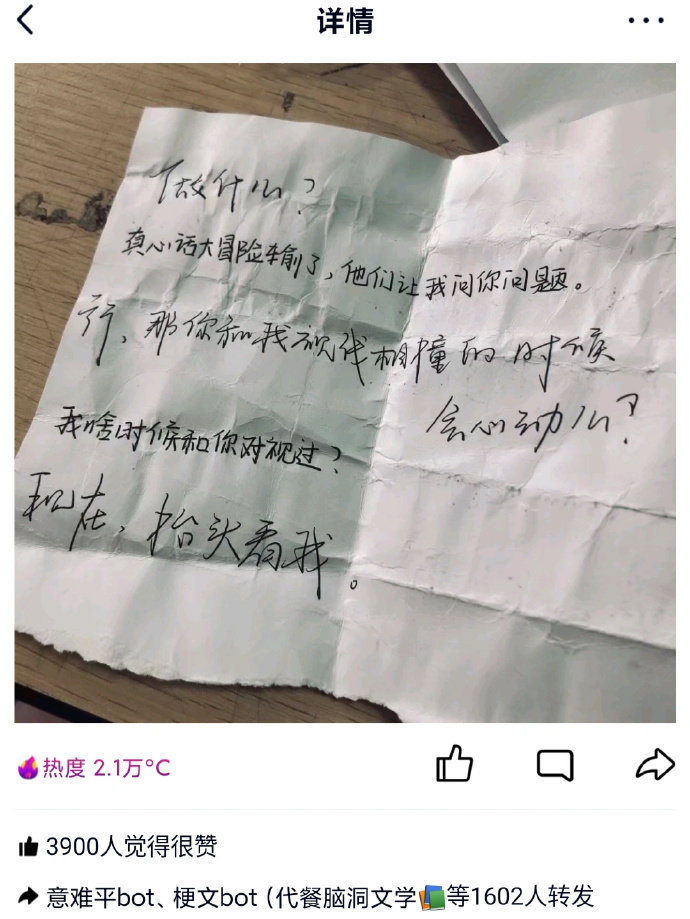 详情
做什么？
真心话大冒险输了，他们让我问你问题。
行，那你和我视线相撞的时候
会心动么？
我啥时候和你对视过？
现在，抬头看我。
热度 2.1万°C
3900人觉得很赞
意难平bot、梗文bot（代餐脑洞文学等1602人转发